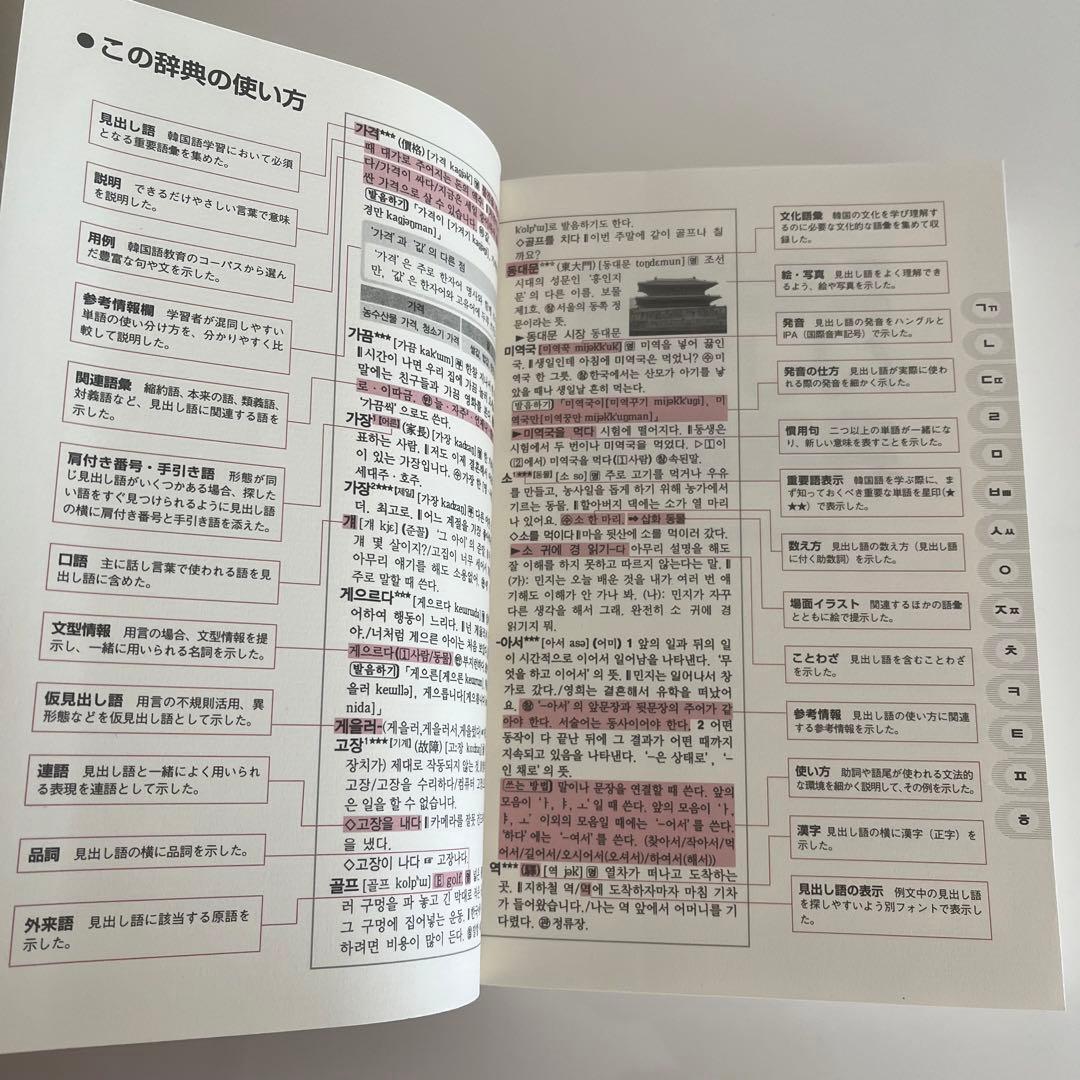 ●この辞典の使い方
見出し語 韓国語学習において必須
となる重要語彙を集めた。
説明 できるだけやさしい言葉で意味
を説明した。
用例 韓国語教育のコーパスから選ん
だ豊富な句や文を示した。
参考情報欄 学習者が混同しやすい
単語の使い分け方を、分かりやすく比
較して説明した。
関連語彙 縮約語、本来の語、類義語、
対義語など、見出し語に関連する語を
示した。
肩付き番号・手引き語 形態が同
じ見出し語がいくつかある場合、探した
い語をすぐ見つけられるように見出し語
の横に肩付き番号と手引き語を添えた。
口語 主に話し言葉で使われる語を見
出し語に含めた。
文型情報 用言の場合、文型情報を提
示し、一緒に用いられる名詞を示した。
仮見出し語 用言の不規則活用、異
形態などを仮見出し語として示した。
連語 見出し語と一緒によく用いられ
る表現を連語として示した。
品詞 見出し語の横に品詞を示した。
外来語 見出し語に該当する原語を
示した。
가격*** (價格) [가격 kagjək] 명
때 대가로 주어지는 돈의
다/가격이 싸다/지금은 세일
싼 가격으로 살 수 있습니다.
발음하기 「가격이 [가겨기
경만 kagjəŋman]」
'가격'과 '값'의 다른 점
'가격'은 주로 한자어 명사와
만, '값'은 한자어와 고유어에
가격
농수산물 가격, 청소기 가격
가끔*** [가끔 kak'ɯm] 부
‖시간이 나면 우리 집에 가끔
말에는 친구들과 가끔 영화를
로·이따금. 반 늘·자주·
'가끔씩'으로도 쓴다.
가장¹ [어른] (家長) [가장 kadʑaŋ] 명
표하는 사람. ‖저도 이제 결혼해서
이 있는 가장입니다.
세대주·호주.
가장²*** [제일] [가장 kadʑaŋ] 부
더. 최고로. ‖어느 계절을 가장
걔 [걔 kjɛ] (준꼴) '그 아이'의 준말
걔 몇 살이지?/고집이 너무 세어서
아무리 얘기를 해도 소용없어.
주로 말할 때 쓴다.
게으르다*** [게으르다 keɯrɯda] 형
어하여 행동이 느리다. ‖넌 게을러
야./너처럼 게으른 아이는 처음
게으르다(①사람/동물) 반 부지런하다
발음하기 「게으른[게으른 keɯrɯn]
을러 keɯllə], 게으릅니다[게으름니다
nida]」
게을러- (게을러, 게을러서, 게을렀다)
고장¹*** [기계] (故障) [고장 kodʑaŋ] 명
장치가) 제대로 작동되지 않는 것.
고장/고장을 수리하다/컴퓨터 고장
은 일을 할 수 없습니다.
◇고장을 내다 ‖카메라를 잘못 건드려
을 냈다.
◇고장이 나다 ☞ 고장나다.
골프 [골프 kolpʰɯ] E golf 명
러 구멍을 파 놓고 긴 막대로
그 구멍에 집어넣는 운동.
하려면 비용이 많이 든다.
k'olpʰɯ]로 발음하기도 한다.
◇골프를 치다 ‖이번 주말에 같이 골프나 칠
까요?
동대문*** (東大門) [동대문 toŋdɛmun] 명 조선
시대의 성문인 '흥인지
문'의 다른 이름. 보물
제1호. 참 서울의 동쪽 정
문이라는 뜻.
▶동대문 시장 동대문
미역국 [미역꾹 mijəkk'uk] 명 미역을 넣어 끓인
국. ‖생일인데 아침에 미역국은 먹었니? 수 미
역국 한 그릇. 참 한국에서는 산모가 아기를 낳
았을 때나 생일날 흔히 먹는다.
발음하기 「미역국이[미역꾸기 mijəkk'ugi], 미
역국만[미역꿍만 mijəkk'uŋman]」
▶미역국을 먹다 시험에 떨어지다. ‖동생은
시험에서 두 번이나 미역국을 먹었다. ▷①이
(②에서) 미역국을 먹다(①사람) 참 속된말.
소¹*** [동물] [소 so] 명 주로 고기를 먹거나 우유
를 만들고, 농사일을 돕게 하기 위해 농가에서
기르는 동물. ‖할아버지 댁에는 소가 열 마리
나 있어요. 수 소 한 마리. ⇒ 삽화 동물
◇소를 먹이다 ‖마을 뒷산에 소를 먹이러 갔다.
▶소 귀에 경 읽기-다 아무리 설명을 해도
잘 이해를 하지 못하고 따르지 않는다는 말. ‖
(가): 민지는 오늘 배운 것을 내가 여러 번 얘
기해도 이해가 안 가나 봐. (나): 민지가 자꾸
다른 생각을 해서 그래. 완전히 소 귀에 경
읽기지 뭐.
-아서*** [아서 asə] (어미) 1 앞의 일과 뒤의 일
이 시간적으로 이어서 일어남을 나타낸다. '무
엇을 하고 이어서'의 뜻. ‖민지는 일어나서 창
가로 갔다./영희는 결혼해서 유학을 떠났어
요. 참 '-아서'의 앞문장과 뒷문장의 주어가 같
아야 한다. 서술어는 동사이어야 한다. 2 어떤
동작이 다 끝난 뒤에 그 결과가 어떤 때까지
지속되고 있음을 나타낸다. '-은 상태로', '-
인 채로'의 뜻.
쓰는 방법 말이나 문장을 연결할 때 쓴다. 앞의
모음이 'ㅏ, ㅑ, ㅗ'일 때 쓴다. 앞의 모음이 'ㅏ,
ㅑ, ㅗ' 이외의 모음일 때에는 '-어서'를 쓴다.
'하다'에는 '-여서'를 쓴다. (찾아서/작아서/먹
어서/길어서/오시어서(오셔서)/하여서(해서))
역*** (驛) [역 jək] 명 열차가 떠나고 도착하는
곳. ‖지하철 역/역에 도착하자마자 마침 기차
가 들어왔습니다./나는 역 앞에서 어머니를 기
다렸다. 관 정류장.
文化語彙 韓国の文化を学び理解す
るのに必要な文化的な語彙を集めて収
録した。
絵・写真 見出し語をよく理解でき
るよう、絵や写真を示した。
発音 見出し語の発音をハングルと
IPA(国際音声記号)で示した。
発音の仕方 見出し語が実際に使わ
れる際の発音を細かく示した。
慣用句 二つ以上の単語が一緒にな
り、新しい意味を表すことを示した。
重要語表示 韓国語を学ぶ際に、ま
ず知っておくべき重要な単語を星印(★
★★)で表示した。
数え方 見出し語の数え方(見出し語
に付く助数詞)を示した。
場面イラスト 関連するほかの語彙
とともに絵で提示した。
ことわざ 見出し語を含むことわざ
を示した。
参考情報 見出し語の使い方に関連
する参考情報を示した。
使い方 助詞や語尾が使われる文法的
な環境を細かく説明して、その例を示した。
漢字 見出し語の横に漢字(正字)を
示した。
見出し語の表示 例文中の見出し語
を探しやすいよう別フォントで表示し
た。
ㄱㄲ
ㄴ
ㄷㄸ
ㄹ
ㅁ
ㅂㅃ
ㅅㅆ
ㅇ
ㅈㅉ
ㅊ
ㅋ
ㅌ
ㅍ
ㅎ